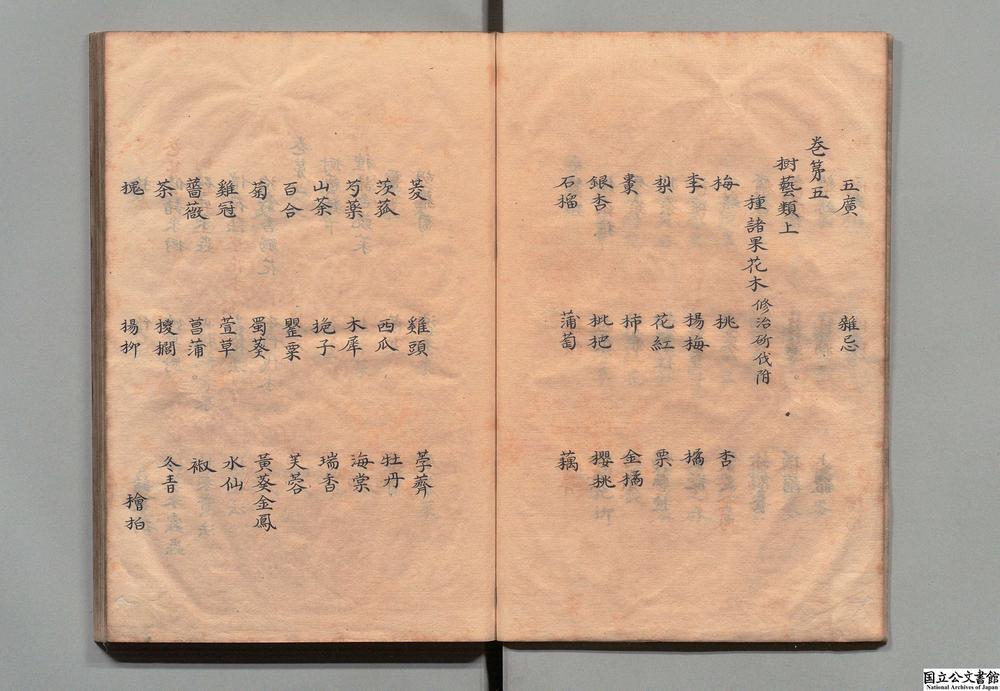 五廣 雜忌
卷第五
樹藝類上
種諸果花木修治斫伐附
梅 桃 杏
李 揚梅 橘
梨 花紅 栗
棗 柿 金橘
銀杏 枇杷 櫻桃
石榴 蒲萄 藕
菱 雞頭 荸薺
茨菰 西瓜 牡丹
芍藥 木犀 海棠
山茶 梔子 瑞香
百合 罌粟 芙蓉
菊 蜀葵 黃葵金鳳
雞冠 萱草 水仙
薔薇 菖蒲 椒
茶 椶櫚 冬青
槐 揚栁 檜栢
国立公文書館
National Archives of Japan